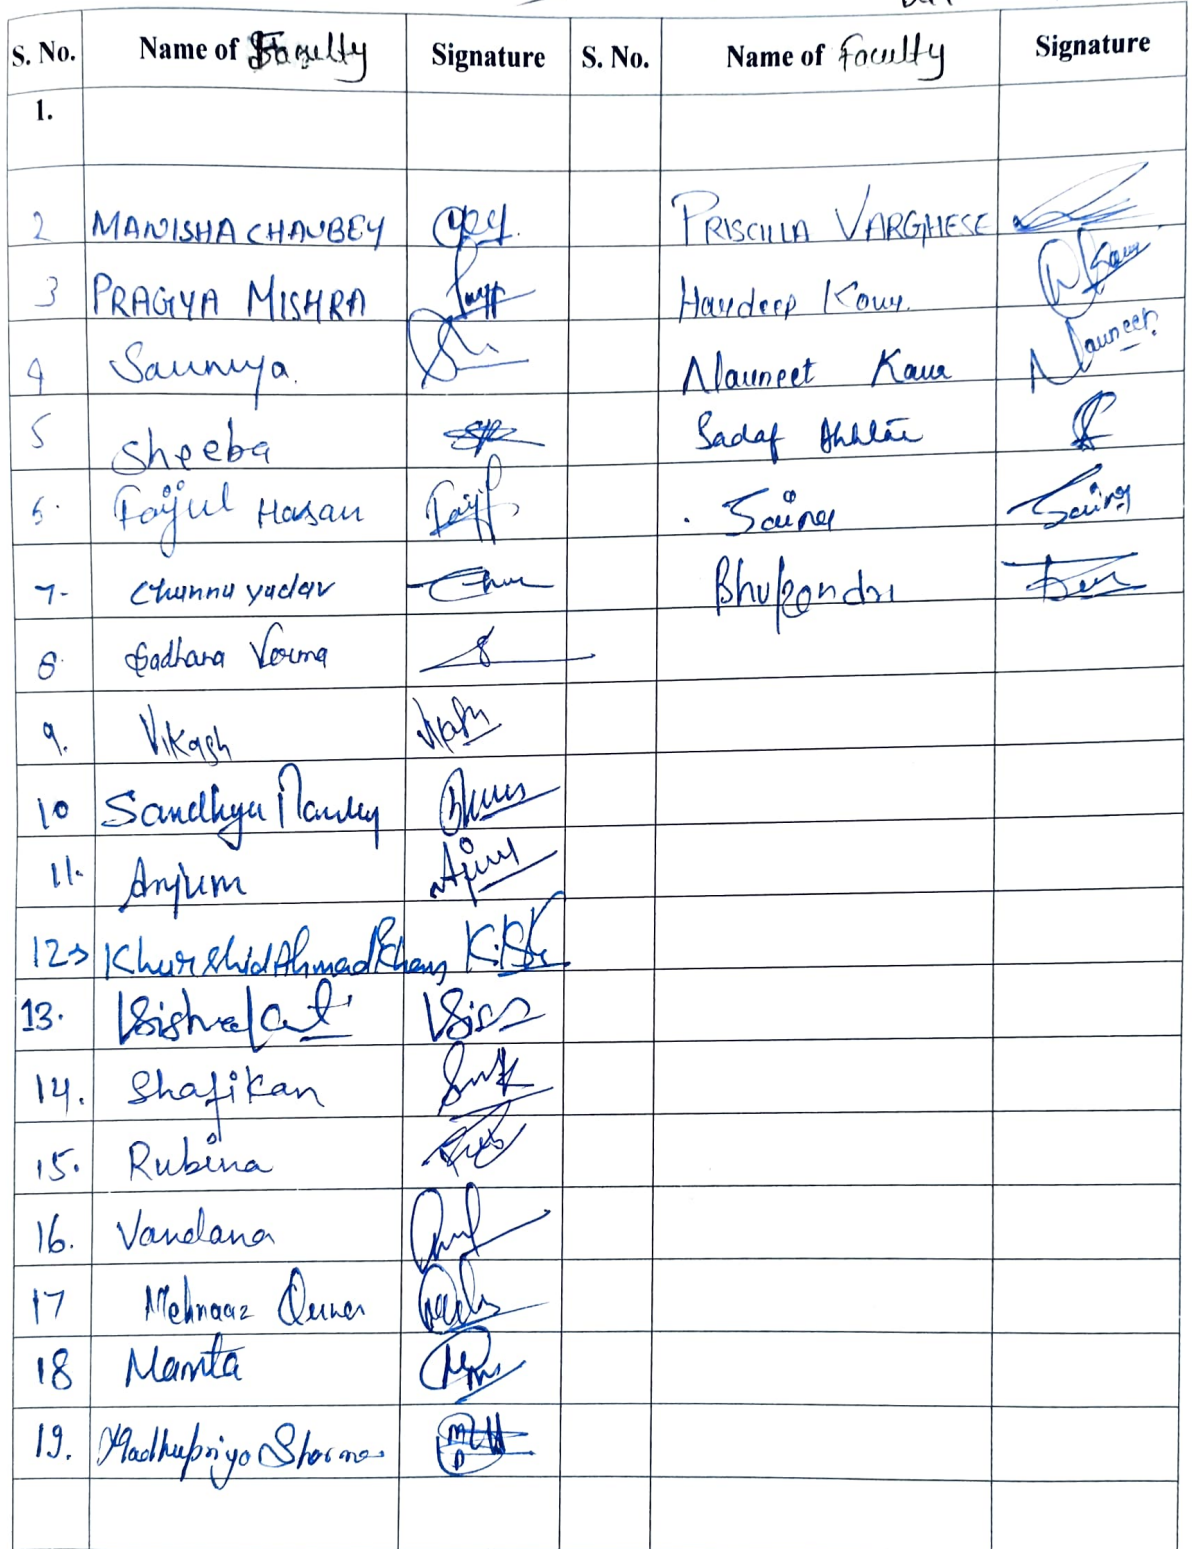 S. No. Name of Faculty Signature S. No. Name of Faculty Signature
1.
2 MANISHA CHAUBEY PRISCILLA VARGHESE
3 PRAGYA MISHRA Hardeep Kour.
4 Saumya. Navneet Kaur Navneet
5 Sheeba Sadaf Akhtar
6. Faijul Hasan Saima Saima
7- Chunnu yadav Bhupendra
8. Sadhana Verma
9. Vikash
10 Sandhya
11. Anjum
12 Khurshid Ahmad Khan
13.
14. Shafikan
15. Rubina
16. Vandana
17 Mehnaaz
18 Mamta
19. Madhupriya Sharma